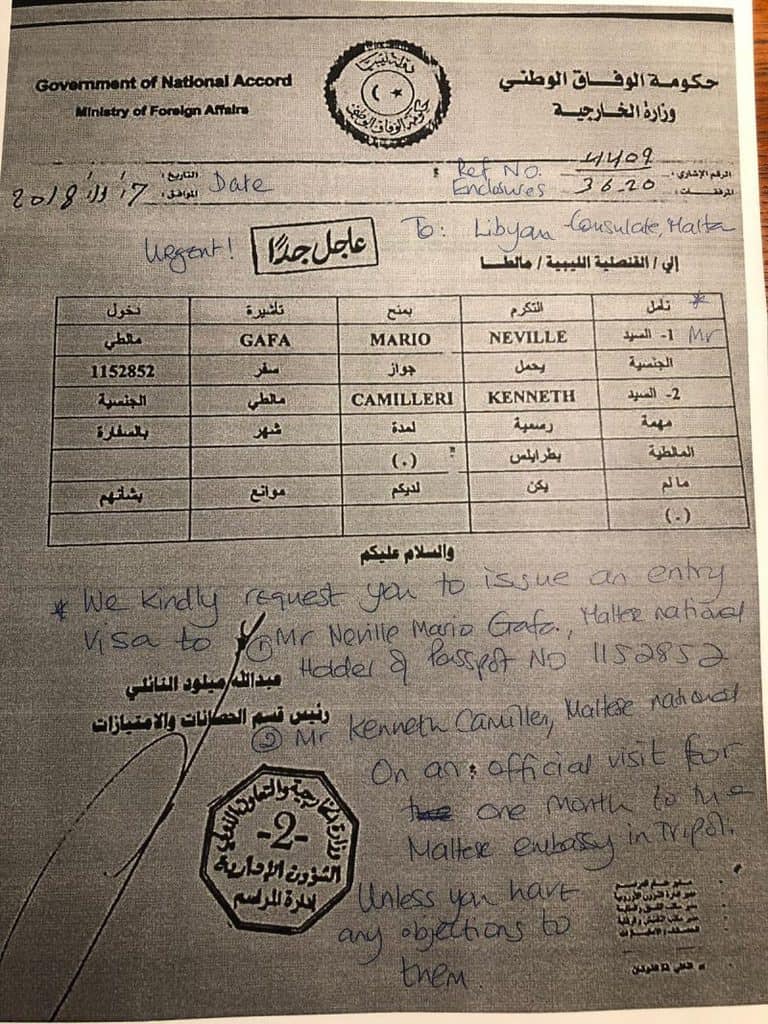 Government of National Accord
Ministry of Foreign Affairs
حكومة الوفاق الوطني
وزارة الخارجية
حكومة الوفاق الوطني
التاريخ :
الموافق : 2018
Date
Ref No.
Enclosures
4409
36.20
الرقم الإشاري :
المرفقات :
Urgent!
عاجل جدًا
To: Libyan Consulate, Malta
إلى / القنصلية الليبية / مالطا
نأمل * التكرم بمنح تأشيرة دخول
1- السيد Mr NEVILLE MARIO GAFA مالطي
الجنسية يحمل جواز سفر 1152852
2- السيد KENNETH CAMILLERI مالطي الجنسية
مهمة رسمية لمدة شهر بالسفارة
المالطية بطرابلس (.)
مالم يكن لديكم موانع بشأنهم
(.)
والسلام عليكم
* We kindly request you to issue an entry
visa to ① Mr Neville Mario Gafa, Maltese national
Holder of Passpot No 1152852
عبدالله ميلود النائلي
رئيس قسم الحصانات والامتيازات
② Mr Kenneth Camilleri, Maltese national
On an official visit for
one month to the
Maltese embassy in Tripoli.
Unless you have
any objections to
them.
-2-
الشؤون الإدارية
إدارة المراسم